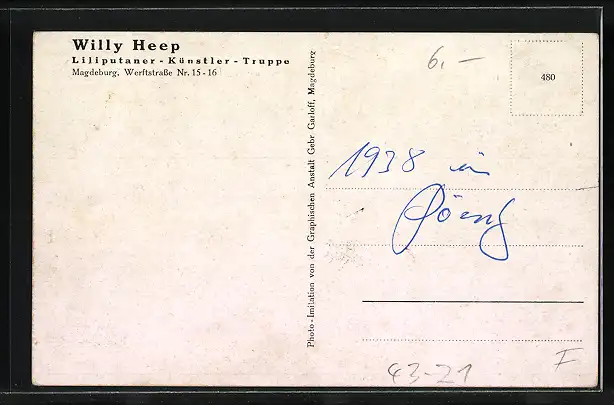 Willy Heep
Liliputaner - Künstler - Truppe
Magdeburg, Werftstraße Nr. 15 - 16
Photo-Imitation von der Graphischen Anstalt Gebr Garloff, Magdeburg
6,-
480
1938 in
43-21
F